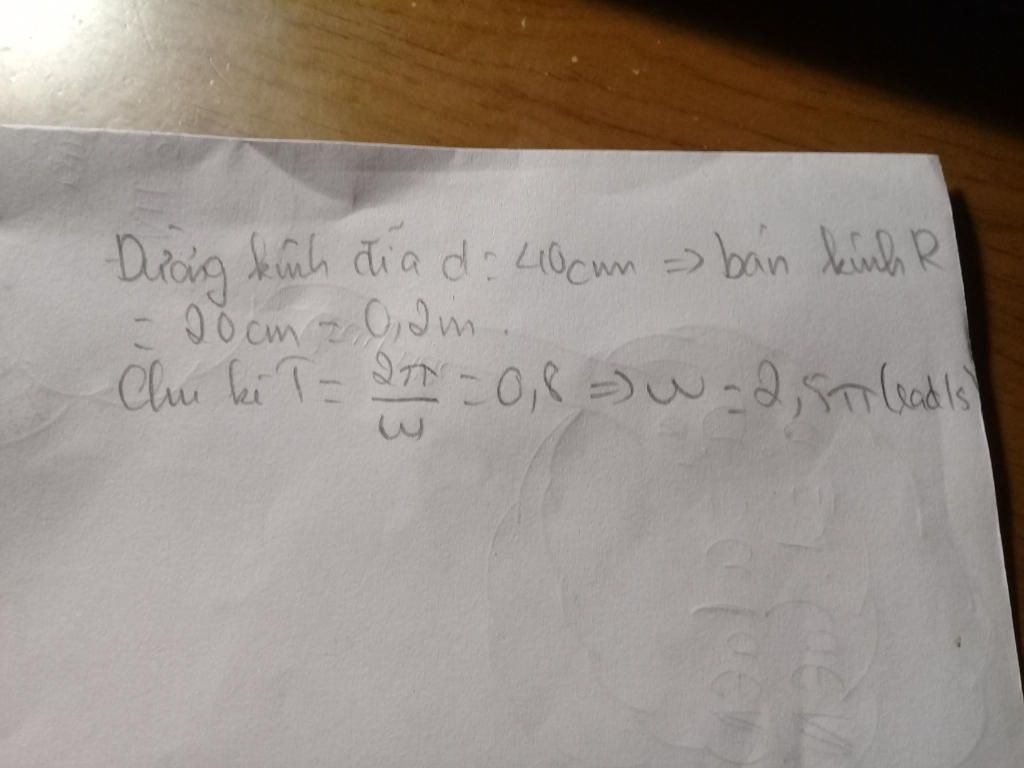 Đường kính đĩa d = 40cm => bán kính R
= 20cm = 0,2m.
Chu kì T = 2π/ω = 0,8 => ω = 2,5π (rad/s)